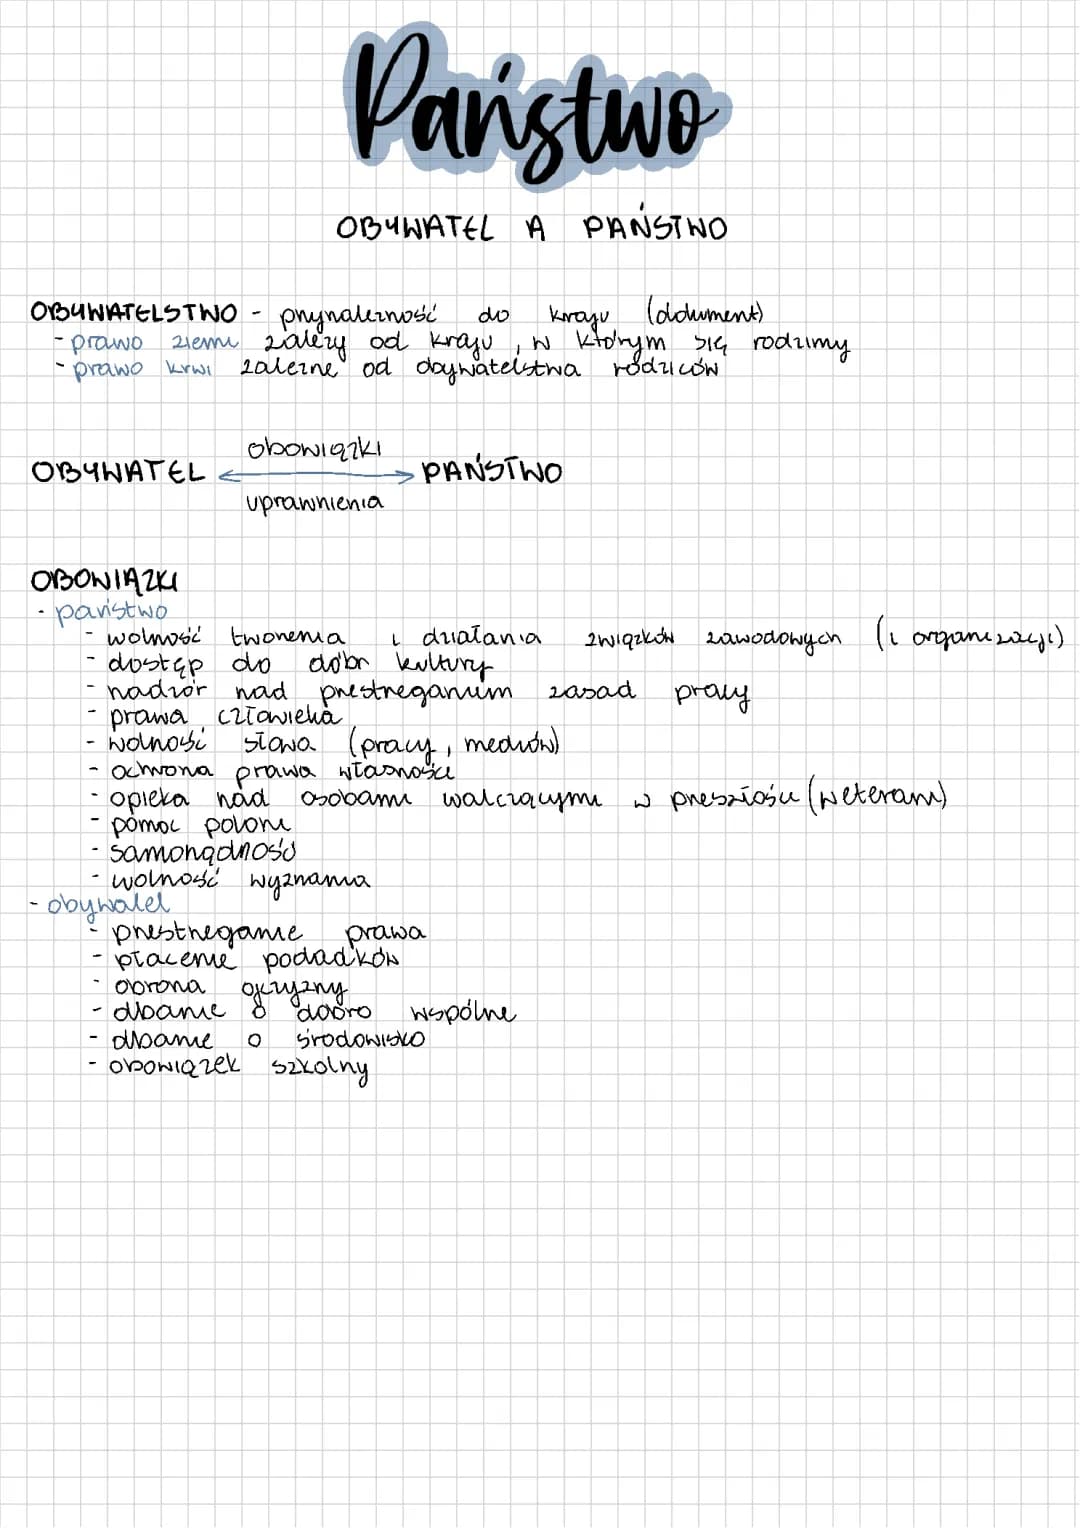 Państwo
OBYWATEL A PAŃSTWO
OBYWATELSTWO - przynależność do kraju (dokument)
- prawo ziemi zależy od kraju, w którym się rodzimy
- prawo krwi zależne od obywatelstwa rodziców
obowiązki
OBYWATEL PAŃSTWO
uprawnienia
OBOWIĄZKI
- państwo
- wolność tworzenia i działania związków zawodowych (i organizacji)
- dostęp do dóbr kultury
- nadzór nad przestrzeganiem zasad pracy
- prawa człowieka
- wolność słowa (pracy, mediów)
- ochrona prawa własności
- opieka nad osobami walczącymi w przeszłości (weterani)
- pomoc polonii
- samorządność
- wolność wyznania
- obywatel
- przestrzeganie prawa
- płacenie podadków
- obrona ojczyzny
- dbanie o dobro wspólne
- dbanie o środowisko
- obowiązek szkolny